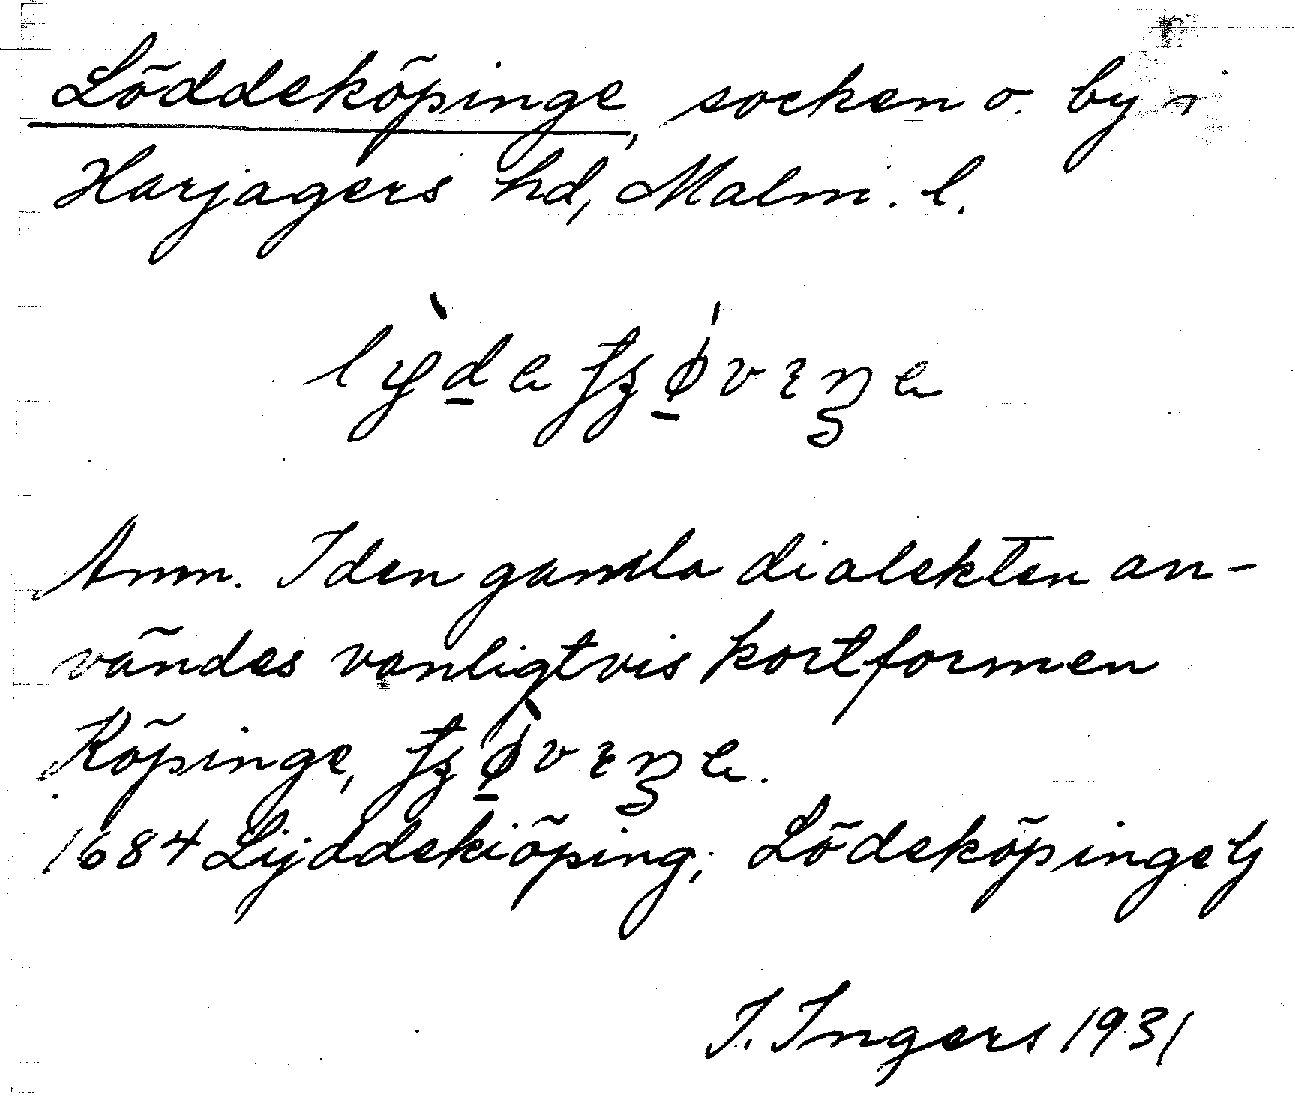 Löddeköpinge, socken o. by i
Harjagers hd, Malm. l.
Anm. I den gamla dialekten an-
vändes vanligtvis kortformen
Köpinge,
1684 Lijddekiöping; Lödeköpinge
I. Ingers 1931